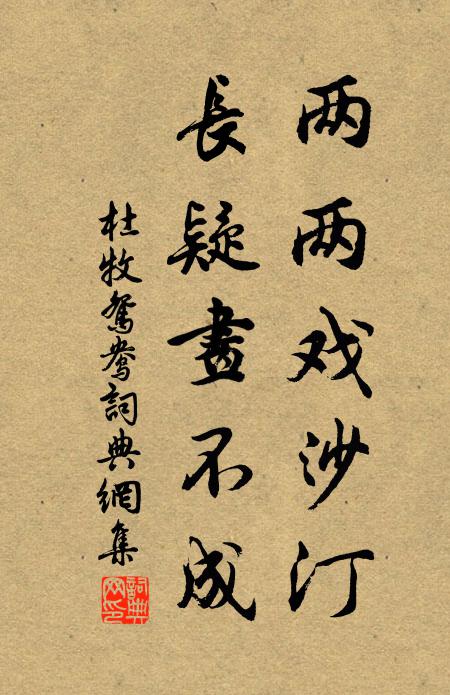 两两戏沙汀
長疑畫不成
杜牧鴛鴦詞典網集
詞典网印